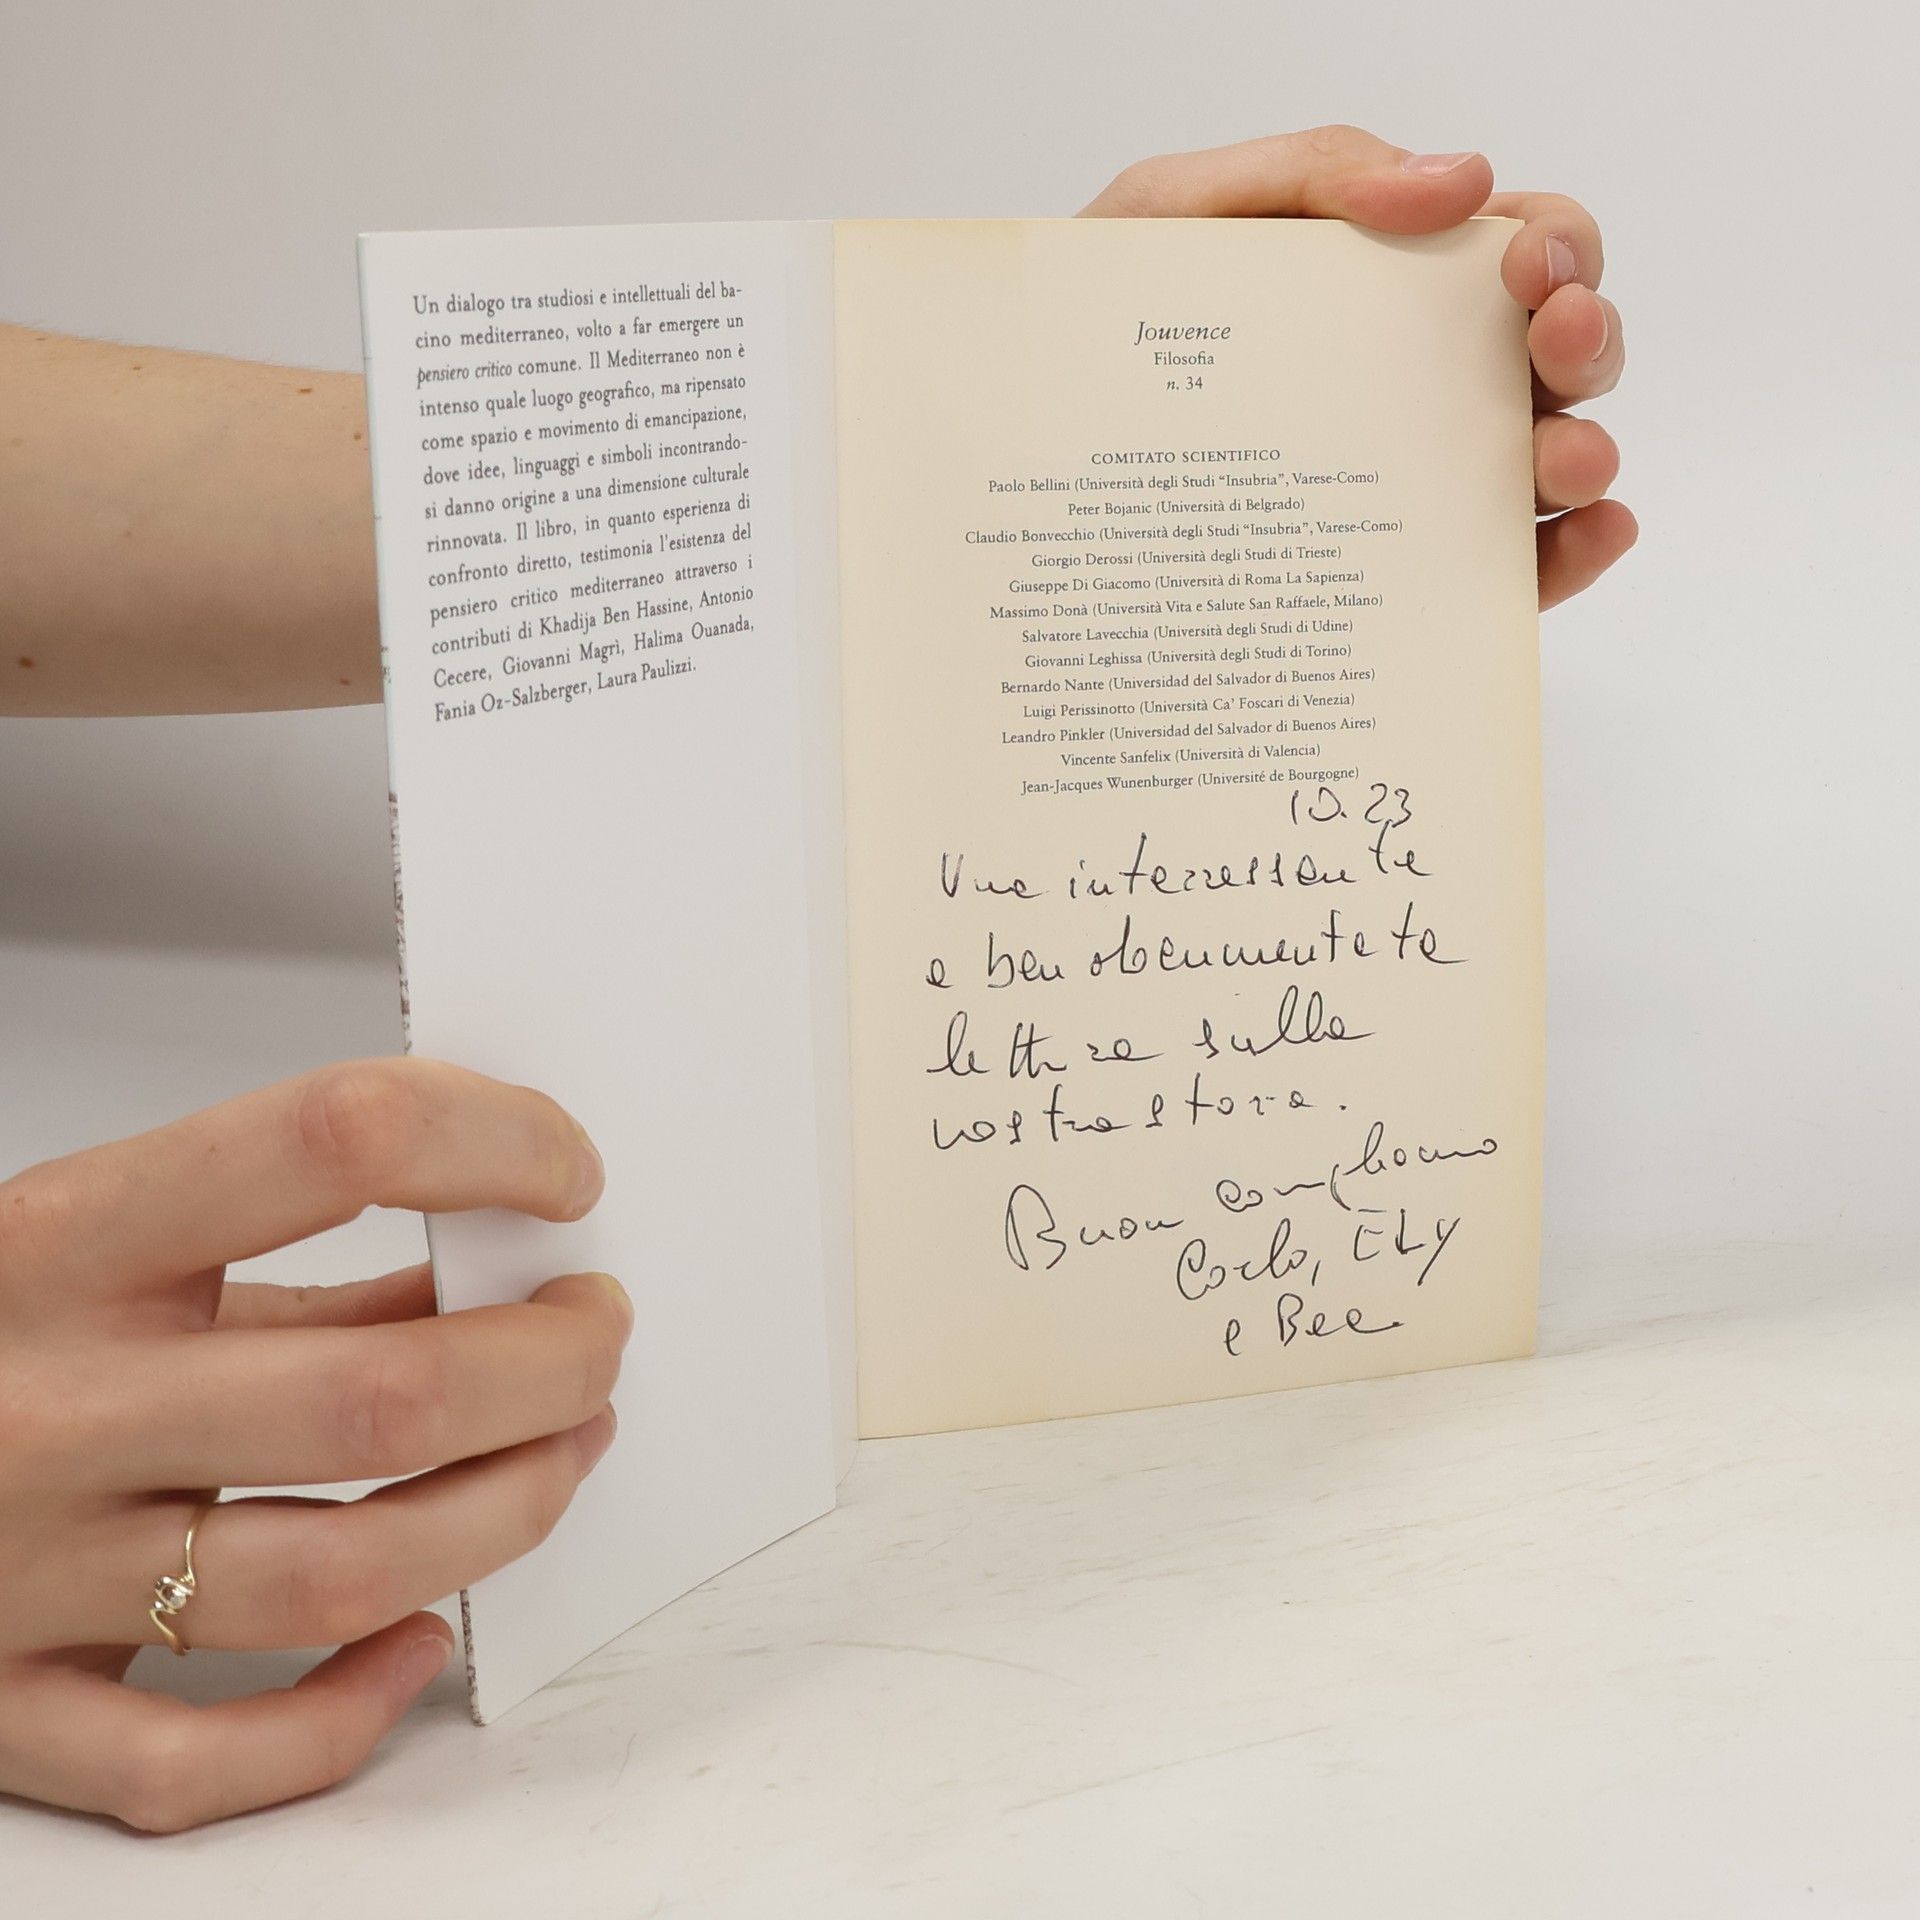 Un dialogo tra studiosi e intellettuali del ba-
cino mediterraneo, volto a far emergere un
pensiero critico comune. Il Mediterraneo non è
intenso quale luogo geografico, ma ripensato
come spazio e movimento di emancipazione,
dove idee, linguaggi e simboli incontrando-
si danno origine a una dimensione culturale
rinnovata. Il libro, in quanto esperienza di
confronto diretto, testimonia l'esistenza del
pensiero critico mediterraneo attraverso i
contributi di Khadija Ben Hassine, Antonio
Cecere, Giovanni Magrì, Halima Ouanada,
Fania Oz-Salzberger, Laura Paulizzi.
Jouvence
Filosofia
n. 34
COMITATO SCIENTIFICO
Paolo Bellini (Università degli Studi “Insubria”, Varese-Como)
Peter Bojanic (Università di Belgrado)
Claudio Bonvecchio (Università degli Studi “Insubria”, Varese-Como)
Giorgio Derossi (Università degli Studi di Trieste)
Giuseppe Di Giacomo (Università di Roma La Sapienza)
Massimo Donà (Università Vita e Salute San Raffaele, Milano)
Salvatore Lavecchia (Università degli Studi di Udine)
Giovanni Leghissa (Università degli Studi di Torino)
Bernardo Nante (Universidad del Salvador di Buenos Aires)
Luigi Perissinotto (Università Ca' Foscari di Venezia)
Leandro Pinkler (Universidad del Salvador di Buenos Aires)
Vincente Sanfelix (Università di Valencia)
Jean-Jacques Wunenburger (Université de Bourgogne)
10. 23
Una interessante
e ben documentata
lettura sulla
nostra storia.
Buon compleanno
Carlo, ELY
e Bea